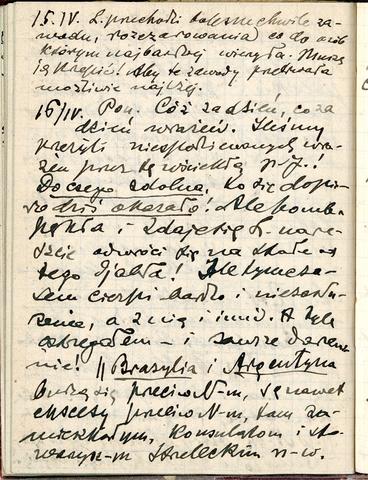 15.IV. L. przechodzi bolesne chwile za-
wodu, rozczarowania co do osób
którym najbardziej wierzyła. Muszę
ją krzepić! Aby te zawody przetrwała
możliwie najlżej.
16/IV. Pon. Cóż za dzień, co za
dzień wrażeń. Ileśmy
przeżyli niespodziewanych wra-
żeń przez tę wściekłą
Do czego zdolna, to się dopie-
ro dziś okazało! Ale bomba
pękła i zdaje się
odwróci się na
tego djabła! Ale tymcza-
sem cierpi bardzo i niezasłu-
żenie, a z nią i inni. A tyle
ostrzegałem – i zawsze darem-
nie! || Brazylia i Argentyna
burzą się przeciw N-m, są nawet
ekscesy przeciw N-m, tam za-
mieszkałym, konsulatom i sto-
warzysz-m